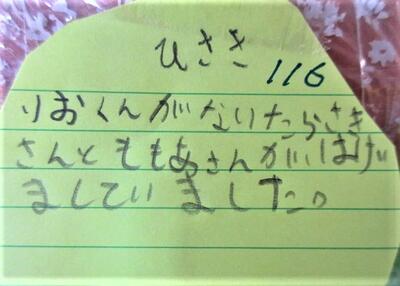 ひさき
116
りおくんがないたらさき
さんとももあさんがはげ
ましていました。